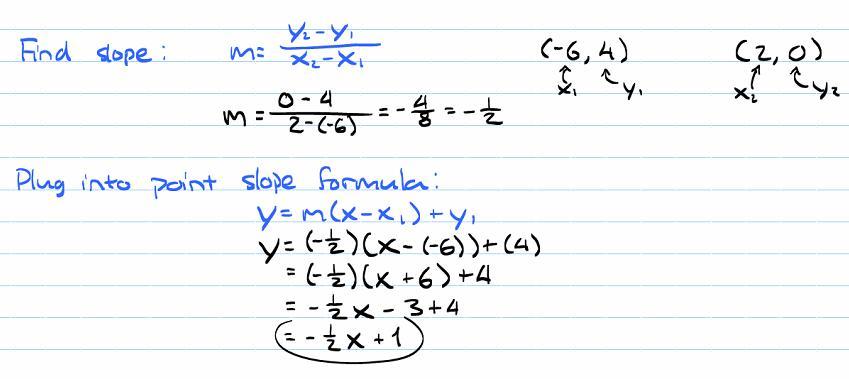 Find slope: m = (y₂ - y₁)/(x₂ - x₁) (-6, 4) (2, 0)
x₁ y₁ x₂ y₂
m = (0 - 4)/(2 - (-6)) = -4/8 = -1/2
Plug into point slope formula:
y = m(x - x₁) + y₁
y = (-1/2)(x - (-6)) + (4)
= (-1/2)(x + 6) + 4
= -1/2 x - 3 + 4
= -1/2 x + 1